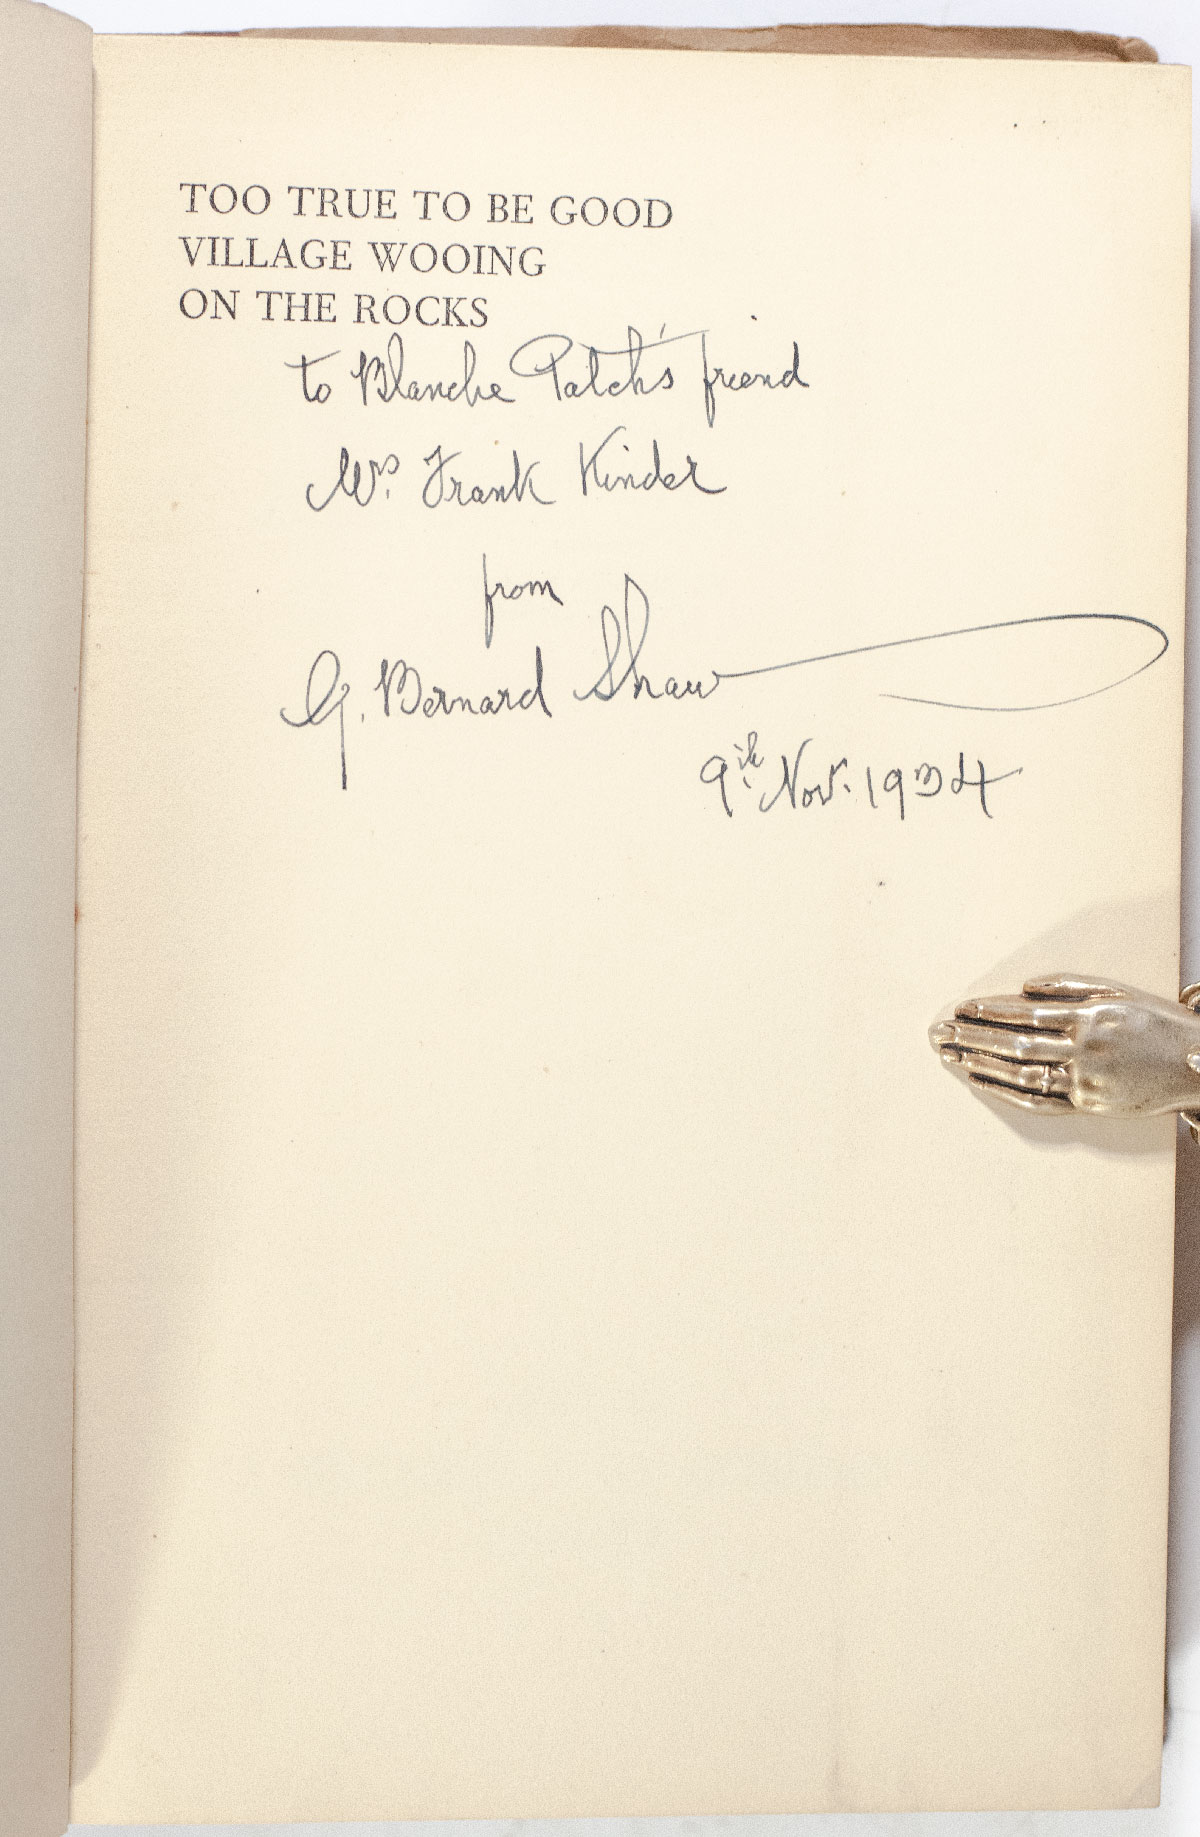 TOO TRUE TO BE GOOD
VILLAGE WOOING
ON THE ROCKS
to Blanche Patch's friend
Mrs. Frank Kinder
from
G. Bernard Shaw
9th Nov. 1934